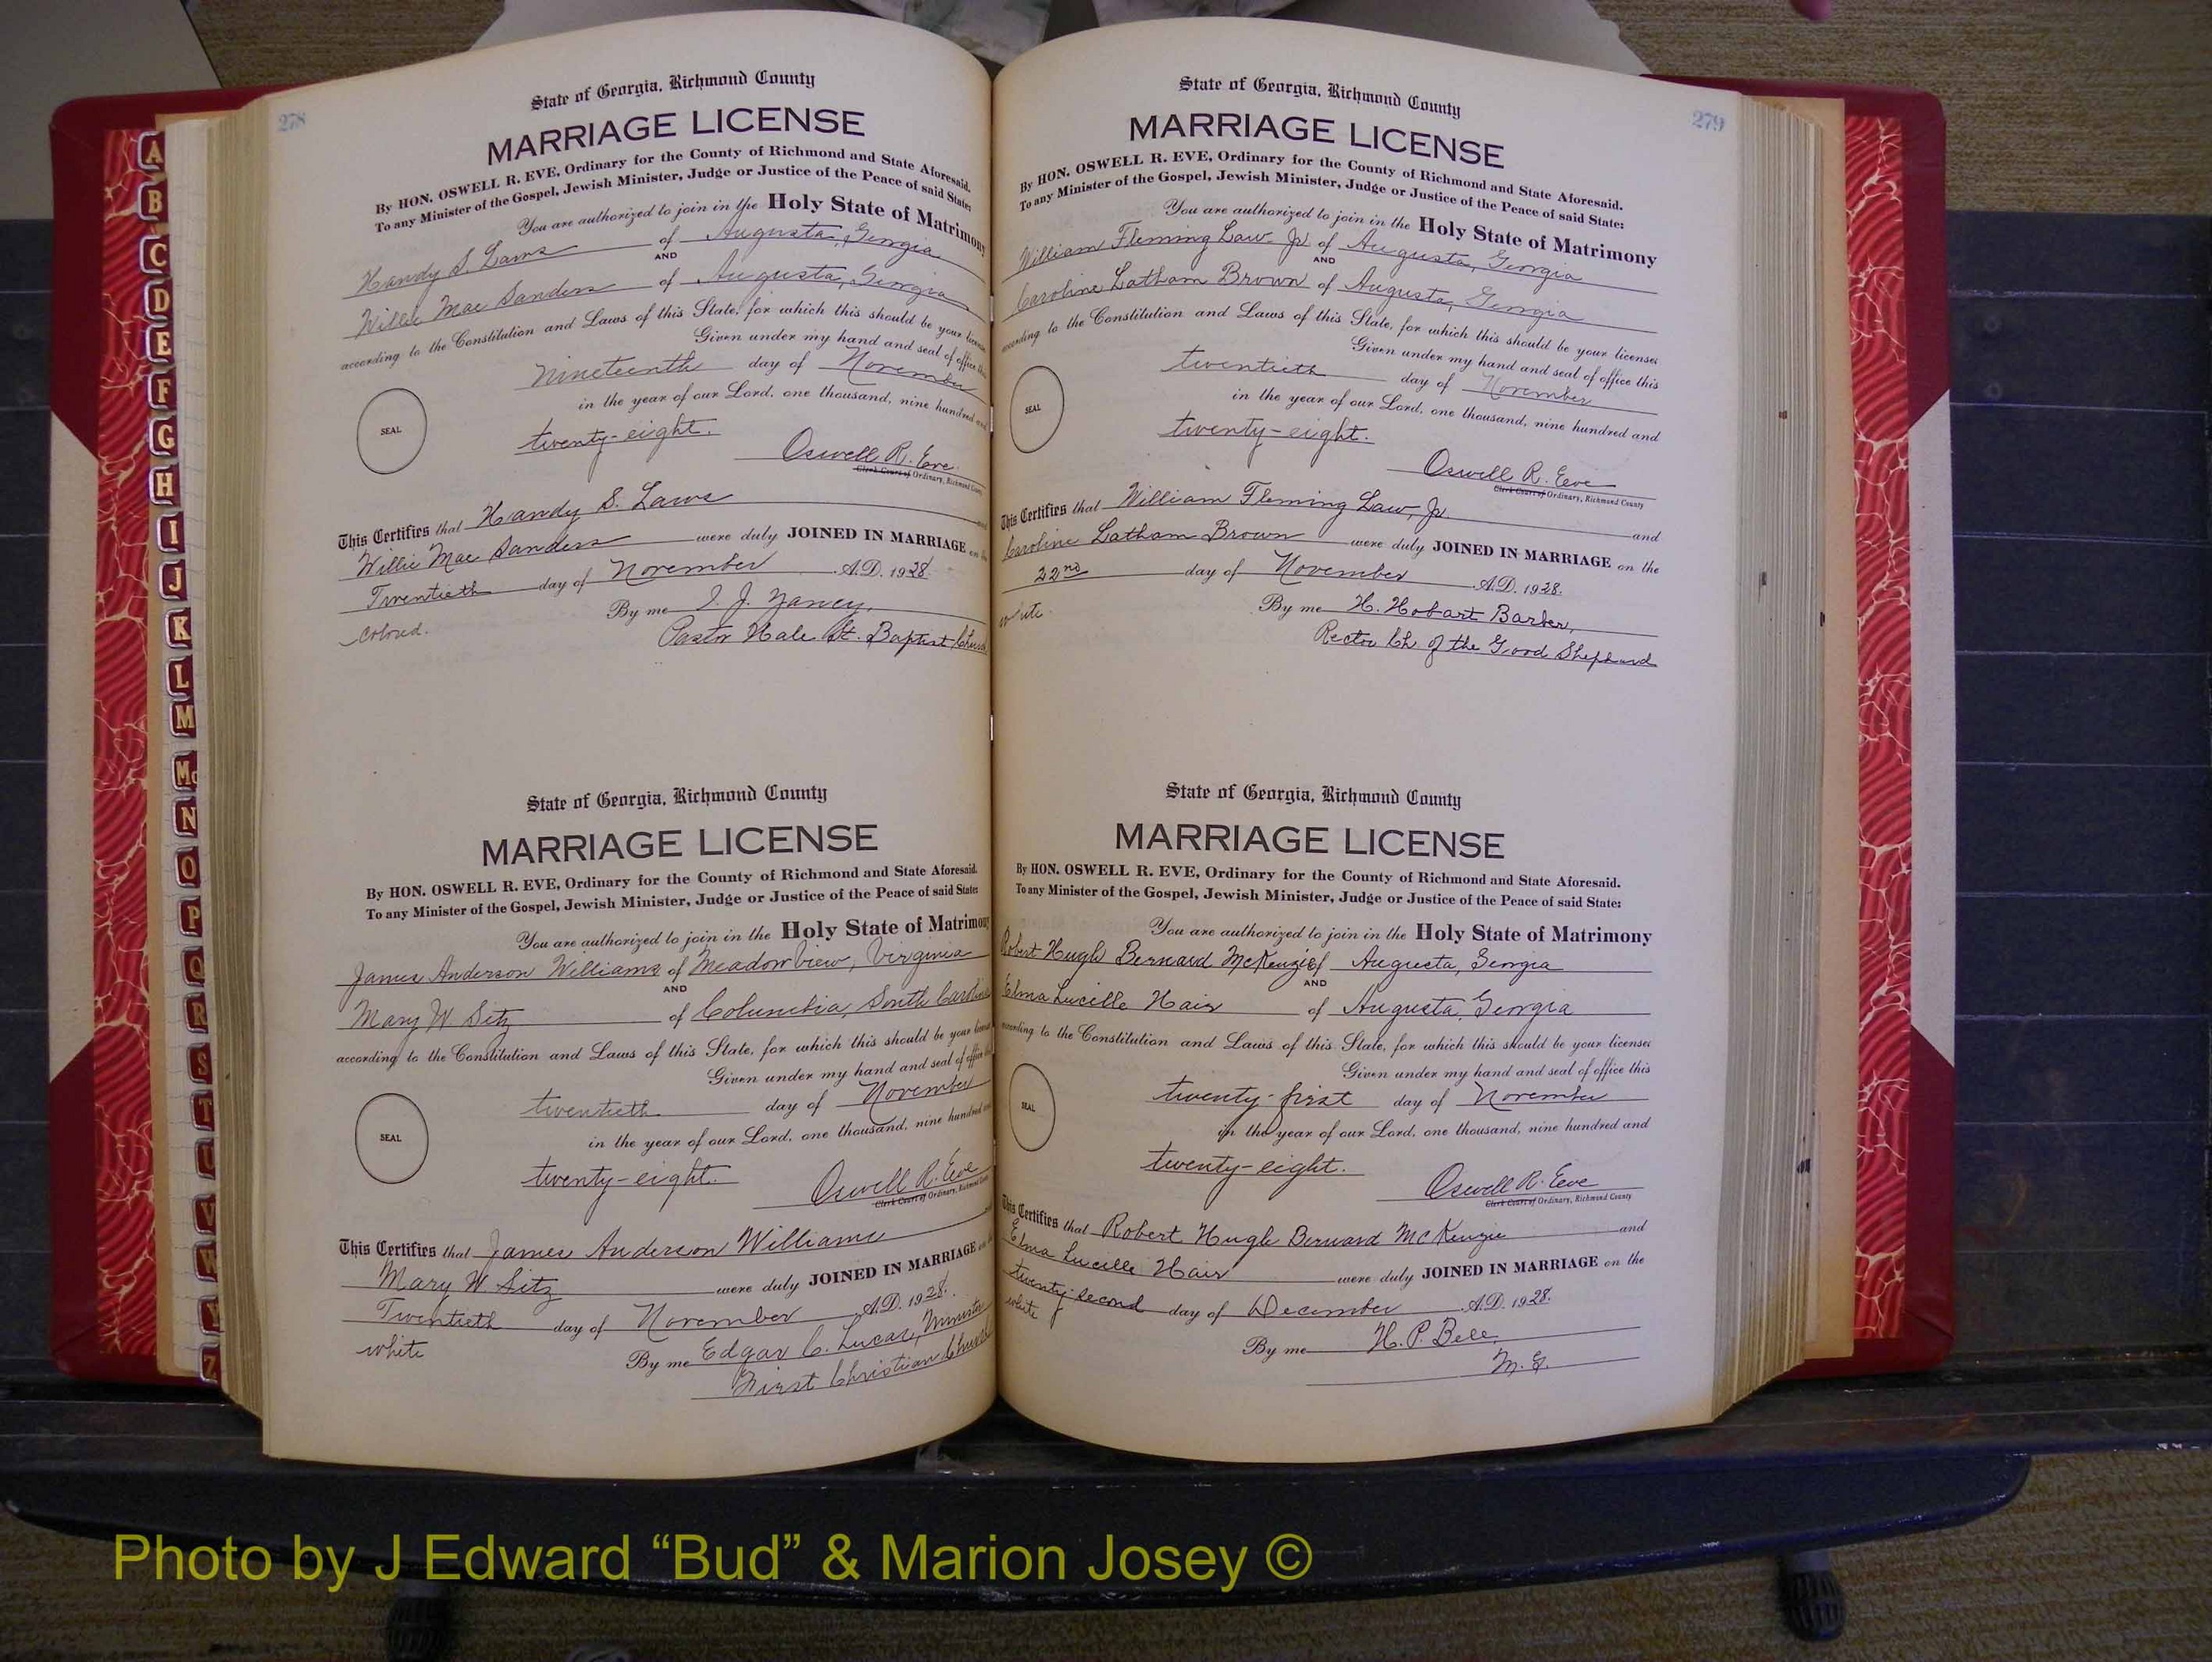 278
State of Georgia, Richmond County
MARRIAGE LICENSE
By HON. OSWELL R. EVE, Ordinary for the County of Richmond and State Aforesaid.
To any Minister of the Gospel, Jewish Minister, Judge or Justice of the Peace of said State:
You are authorized to join in the Holy State of Matrimony
Handy S. Laws of Augusta, Georgia
AND
Willie Mae Sanders of Augusta, Georgia
according to the Constitution and Laws of this State, for which this should be your license
Given under my hand and seal of office this
Nineteenth day of November
in the year of our Lord, one thousand, nine hundred and
SEAL
twenty-eight.
Oswell R. Eve
Clerk Court of Ordinary, Richmond County
This Certifies that Handy S. Laws and
Willie Mae Sanders were duly JOINED IN MARRIAGE on the
Twentieth day of November A.D. 1928.
By me J. Yancy,
colored.
Pastor Hale St. Baptist Church
State of Georgia, Richmond County
MARRIAGE LICENSE
By HON. OSWELL R. EVE, Ordinary for the County of Richmond and State Aforesaid.
To any Minister of the Gospel, Jewish Minister, Judge or Justice of the Peace of said State:
You are authorized to join in the Holy State of Matrimony
James Anderson Williams of Meadow View, Virginia
AND
Mary W. Sitz of Columbia, South Carolina
according to the Constitution and Laws of this State, for which this should be your license
Given under my hand and seal of office this
twentieth day of November
SEAL
in the year of our Lord, one thousand, nine hundred and
twenty-eight.
Oswell R. Eve
Clerk Court of Ordinary, Richmond County
This Certifies that James Anderson Williams
Mary W. Sitz were duly JOINED IN MARRIAGE on the
Twentieth day of November A.D. 1928.
white
By me Edgar C. Lucas, Minister
First Christian Church
279
State of Georgia, Richmond County
MARRIAGE LICENSE
By HON. OSWELL R. EVE, Ordinary for the County of Richmond and State Aforesaid.
To any Minister of the Gospel, Jewish Minister, Judge or Justice of the Peace of said State:
You are authorized to join in the Holy State of Matrimony
William Fleming Law Jr of Augusta, Georgia
AND
Caroline Latham Brown of Augusta, Georgia
according to the Constitution and Laws of this State, for which this should be your license:
Given under my hand and seal of office this
twentieth day of November
SEAL
in the year of our Lord, one thousand, nine hundred and
twenty-eight.
Oswell R. Eve
Clerk Court of Ordinary, Richmond County
This Certifies that William Fleming Law, Jr. and
Caroline Latham Brown were duly JOINED IN MARRIAGE on the
22nd day of November A.D. 1928.
white
By me H. Hobart Barber,
Rector Ch. of the Good Shepherd
State of Georgia, Richmond County
MARRIAGE LICENSE
By HON. OSWELL R. EVE, Ordinary for the County of Richmond and State Aforesaid.
To any Minister of the Gospel, Jewish Minister, Judge or Justice of the Peace of said State:
You are authorized to join in the Holy State of Matrimony
Robert Hugh Bernard McKenzie of Augusta, Georgia
AND
Elma Lucille Hair of Augusta, Georgia
according to the Constitution and Laws of this State, for which this should be your license:
Given under my hand and seal of office this
twenty-first day of November
SEAL
in the year of our Lord, one thousand, nine hundred and
twenty-eight.
Oswell R. Eve
Clerk Court of Ordinary, Richmond County
This Certifies that Robert Hugh Bernard McKenzie and
Elma Lucille Hair were duly JOINED IN MARRIAGE on the
twenty-second day of December A.D. 1928.
white
By me H. P. Bell,
M. G.
A
B
C
D
E
F
G
H
I
J
K
L
M
Mc
N
O
P
Q
R
S
T
U
V
W
Y
Z
Photo by J Edward “Bud” & Marion Josey ©